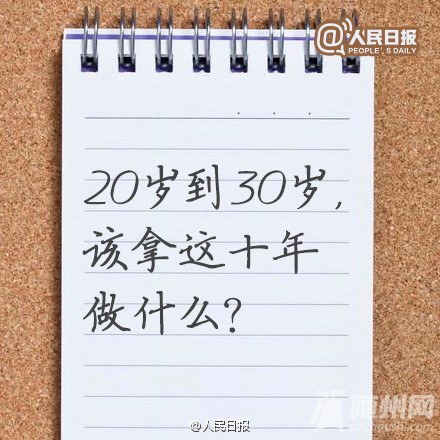 @人民日报
PEOPLE'S DAILY
20岁到30岁,
该拿这十年
做什么?
@人民日报
随州网